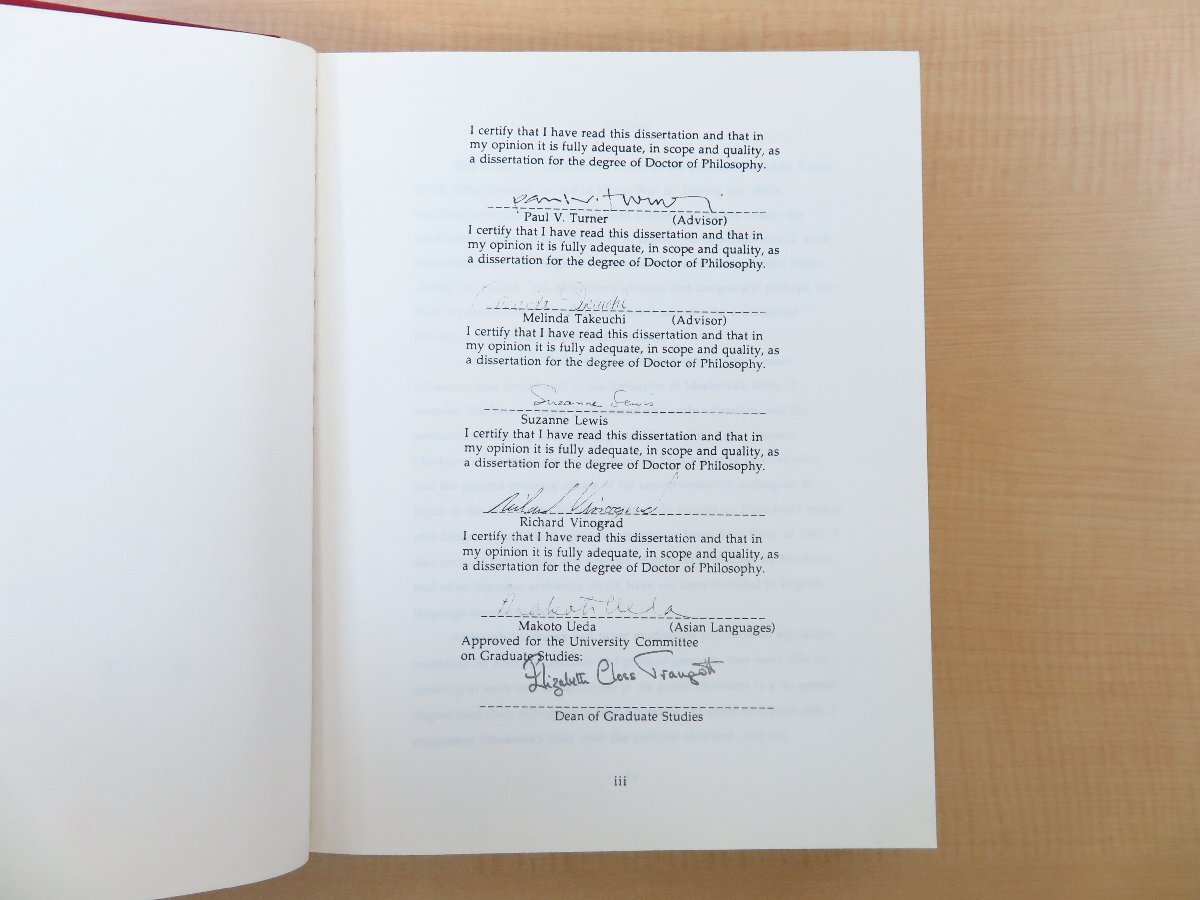 I certify that I have read this dissertation and that in
my opinion it is fully adequate, in scope and quality, as
a dissertation for the degree of Doctor of Philosophy.
Paul V. Turner
Paul V. Turner (Advisor)
I certify that I have read this dissertation and that in
my opinion it is fully adequate, in scope and quality, as
a dissertation for the degree of Doctor of Philosophy.
Melinda Takeuchi
Melinda Takeuchi (Advisor)
I certify that I have read this dissertation and that in
my opinion it is fully adequate, in scope and quality, as
a dissertation for the degree of Doctor of Philosophy.
Suzanne Lewis
Suzanne Lewis
I certify that I have read this dissertation and that in
my opinion it is fully adequate, in scope and quality, as
a dissertation for the degree of Doctor of Philosophy.
Richard Vinograd
Richard Vinograd
I certify that I have read this dissertation and that in
my opinion it is fully adequate, in scope and quality, as
a dissertation for the degree of Doctor of Philosophy.
Makoto Ueda
Makoto Ueda (Asian Languages)
Approved for the University Committee
on Graduate Studies:
Elizabeth Closs Traugott
Dean of Graduate Studies
iii